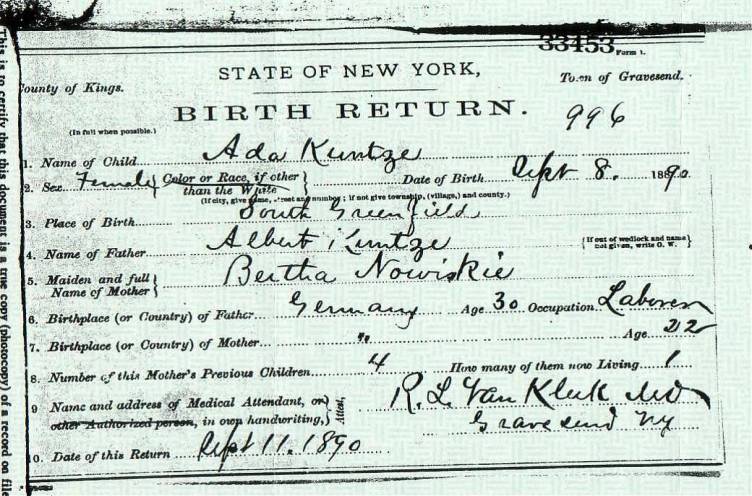 33453 Form 1.
STATE OF NEW YORK,
County of Kings. Town of Gravesend.
BIRTH RETURN.
996
(In full when possible.)
1. Name of Child Ada Kuntze
2. Sex Female Color or Race, if other than the White Date of Birth Sept 8. 1890.
(If city, give name, street and number; if not give township, (village,) and county.)
3. Place of Birth South Greenfield
4. Name of Father Albert Kuntze (If out of wedlock and name not given, write O. W.)
5. Maiden and full Name of Mother Bertha Nowiskie
6. Birthplace (or Country) of Father Germany Age 30 Occupation Laborer
7. Birthplace (or Country) of Mother " Age 22
8. Number of this Mother's Previous Children 4 How many of them now Living 1
9 Name and address of Medical Attendant, or other Authorized person, in own handwriting, Attest, R. L. Van Kleek MD
Gravesend NY
10. Date of this Return Sept 11. 1890
This is to certify that this document is a true copy (photocopy) of a record on file